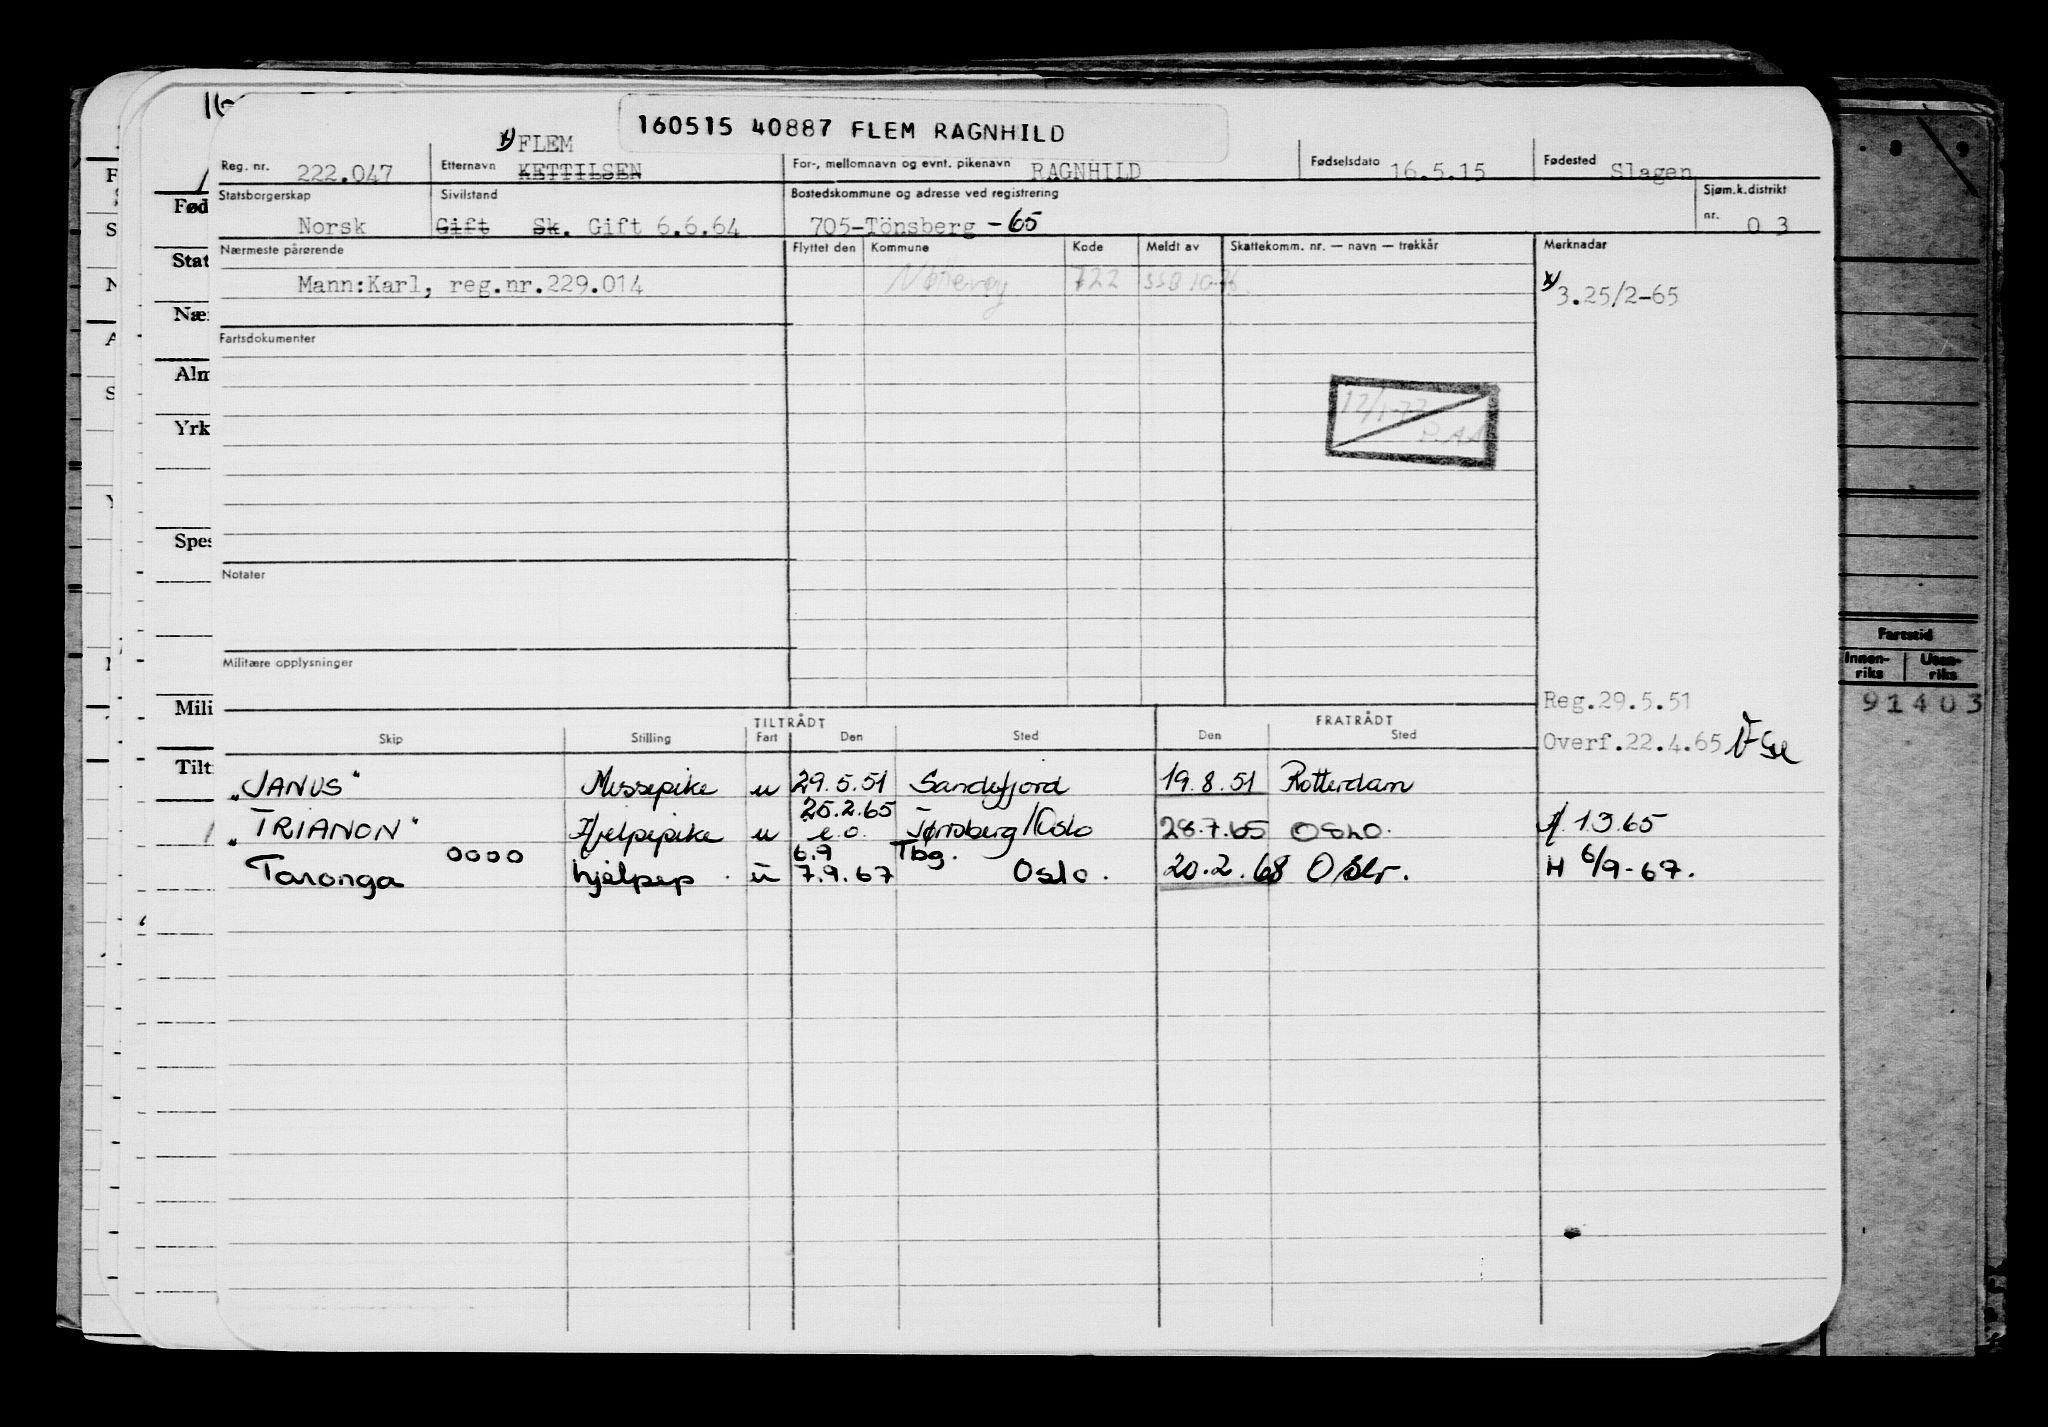 160515 40887 FLEM RAGNHILD
x) FLEM
Reg. nr. 222.047 Etternavn KETTILSEN For-, mellomnavn og evnt. pikenavn RAGNHILD Fødselsdato 16.5.15 Fødested Slagen
Statsborgerskap Norsk Sivilstand Gift Sk. Gift 6.6.64 Bostedskommune og adresse ved registrering 705-Tönsberg -65 Sjøm.k.distrikt nr. 0 3
Nærmeste pårørende Flyttet den Kommune Kode Meldt av Skattekomm. nr. — navn — trekkår Merknadar
Mann:Karl, reg.nr.229.014 Nøtterøy 722 SSB 10-76 x) 3.25/2-65
Fartsdokumenter
12/1-77
P.AA
Notater
Militære opplysninger
Reg.29.5.51
Overf.22.4.65
TILTRÅDT FRATRÅDT
Skip Stilling Fart Den Sted Den Sted
"JANUS" Messepike u 29.5.51 Sandefjord 19.8.51 Rotterdam
25.2.65
"TRIANON" Hjelpepike u e.o. Tønsberg/Oslo 28.7.65 OSLO. 1.3.65
6.9 Tbg.
Taronga oooo hjelpep. u 7.9.67 Oslo. 20.2.68 Oslo. H 6/9-67.
Fød
Stat
Nær
Alm
Yrk
Spes
Mili
Tilt
8 9
Fartstid
Innen-riks Uten-riks
91403